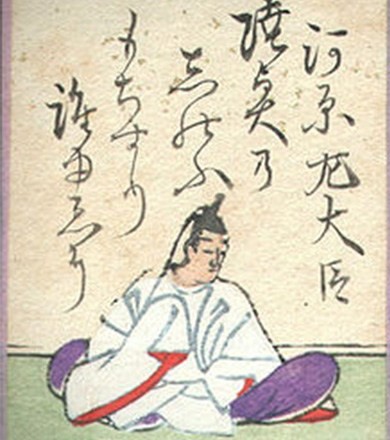 河原左大臣
陸奥乃
しのふ
もちすり
誰ゆゑに